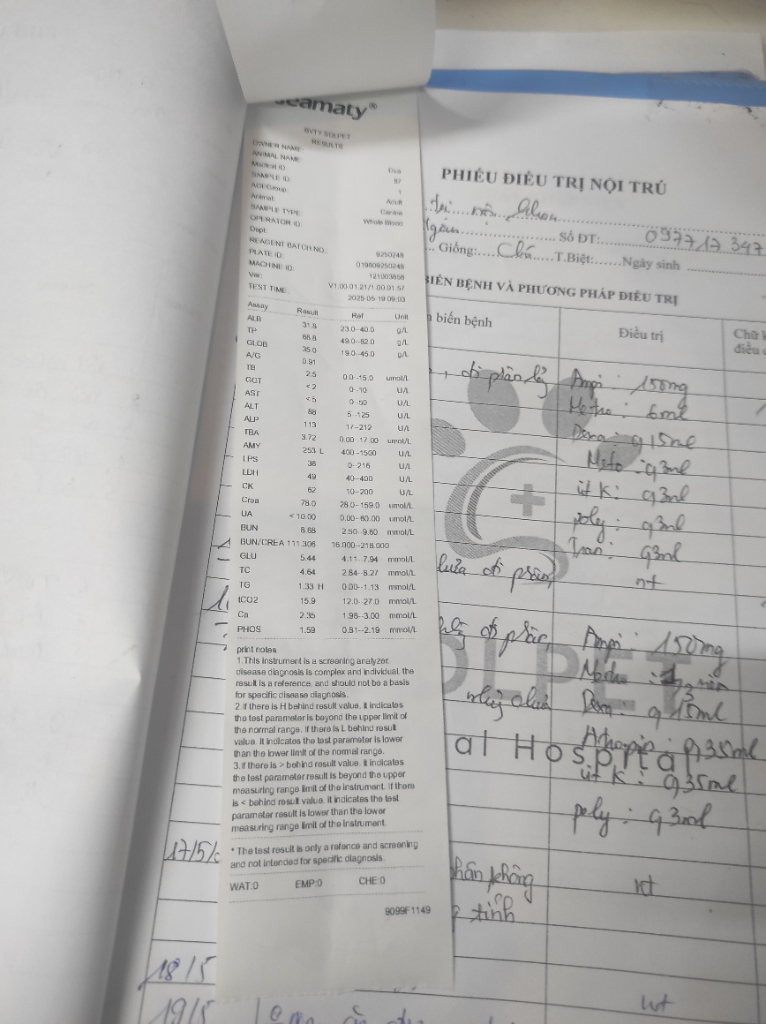 seamaty®
RESULTS
OWNER NAME:
ANIMAL NAME
Medical ID:
SAMPLE ID: 87
AGE/Group: 1
Animal: Adult
SAMPLE TYPE: Canine
OPERATOR ID: Whole Blood
Dept:
REAGENT BATCH NO.:
PLATE ID: 9250248
MACHINE ID:
Ver:
TEST TIME: V1.00.01.21/1.00.01.57
2025-05-19 09:03
Assay Result Ref Unit
ALB 31.8 23.0-40.0 g/L
TP 66.8 49.0-82.0 g/L
GLOB 35.0 19.0-45.0 g/L
A/G 0.91
TB 2.5 0.0-15.0 umol/L
GGT <2 0-10 U/L
AST <5 0-50 U/L
ALT 88 5-125 U/L
ALP 113 17-212 U/L
TBA 3.72 0.00-17.00 umol/L
AMY 253 L 400-1500 U/L
LPS 36 0-216 U/L
LDH 49 40-400 U/L
CK 62 10-200 U/L
Crea 78.0 28.0-159.0 umol/L
UA <10.00 0.00-60.00 umol/L
BUN 8.68 2.50-9.60 mmol/L
BUN/CREA 111.306 16.000-218.000
GLU 5.44 4.11-7.94 mmol/L
TC 4.64 2.84-8.27 mmol/L
TG 1.33 H 0.00-1.13 mmol/L
tCO2 15.9 12.0-27.0 mmol/L
Ca 2.35 1.98-3.00 mmol/L
PHOS 1.59 0.81-2.19 mmol/L
print notes
1.This instrument is a screening analyzer,
disease diagnosis is complex and individual, the
result is a reference, and should not be a basis
for specific disease diagnosis.
2.if there is H behind result value, it indicates
the test parameter is beyond the upper limit of
the normal range. if there is L behind result
value, it indicates the test parameter is lower
than the lower limit of the normal range.
3.if there is > behind result value, it indicates
the test parameter result is beyond the upper
measuring range limit of the instrument. if there
is < behind result value, it indicates the test
parameter result is lower than the lower
measuring range limit of the instrument.
* The test result is only a refence and screening
and not intended for specific diagnosis.
WAT:0 EMP:0 CHE:0
9099F1149
PHIẾU ĐIỀU TRỊ NỘI TRÚ
Số ĐT: 0977 17 347
Giống: Chó T.Biệt: Ngày sinh
BIẾN BỆNH VÀ PHƯƠNG PHÁP ĐIỀU TRỊ
biến bệnh Điều trị Chữ
điều
Ampi : 150mg
Metro : 6ml
Dexa : 0,15ml
Meto : 0,3ml
vit K : 0,3ml
poly : 0,3ml
Tran : 0,3ml
nt
Ampi : 150mg
Dexa : 0,15ml
Atropin : 0,35ml
al Hospital
vit K : 0,35ml
poly : 0,3ml
17/5
phân không nt
tỉnh
18/5
nt
19/5